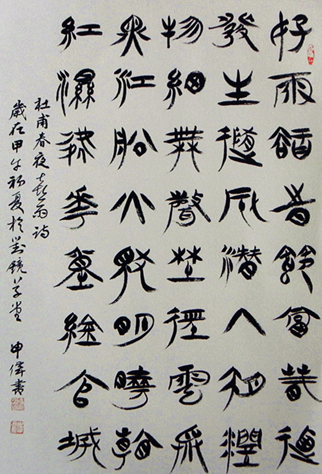 好雨知時節當春乃
發生隨風潛入夜潤
物細無聲野徑雲俱
黑江船火獨明曉看
紅濕處花重錦官城
杜甫春夜喜雨詩
歲在甲午初夏於鏡草堂 申偉書